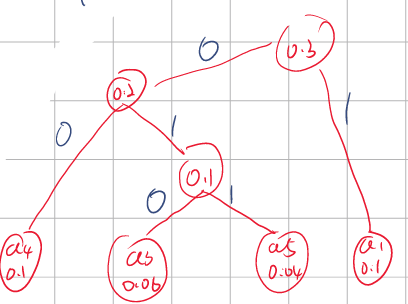 0
0.3
0.2
0
1
1
0.1
0
1
a4
0.1
a3
0.06
a5
0.04
a1
0.1